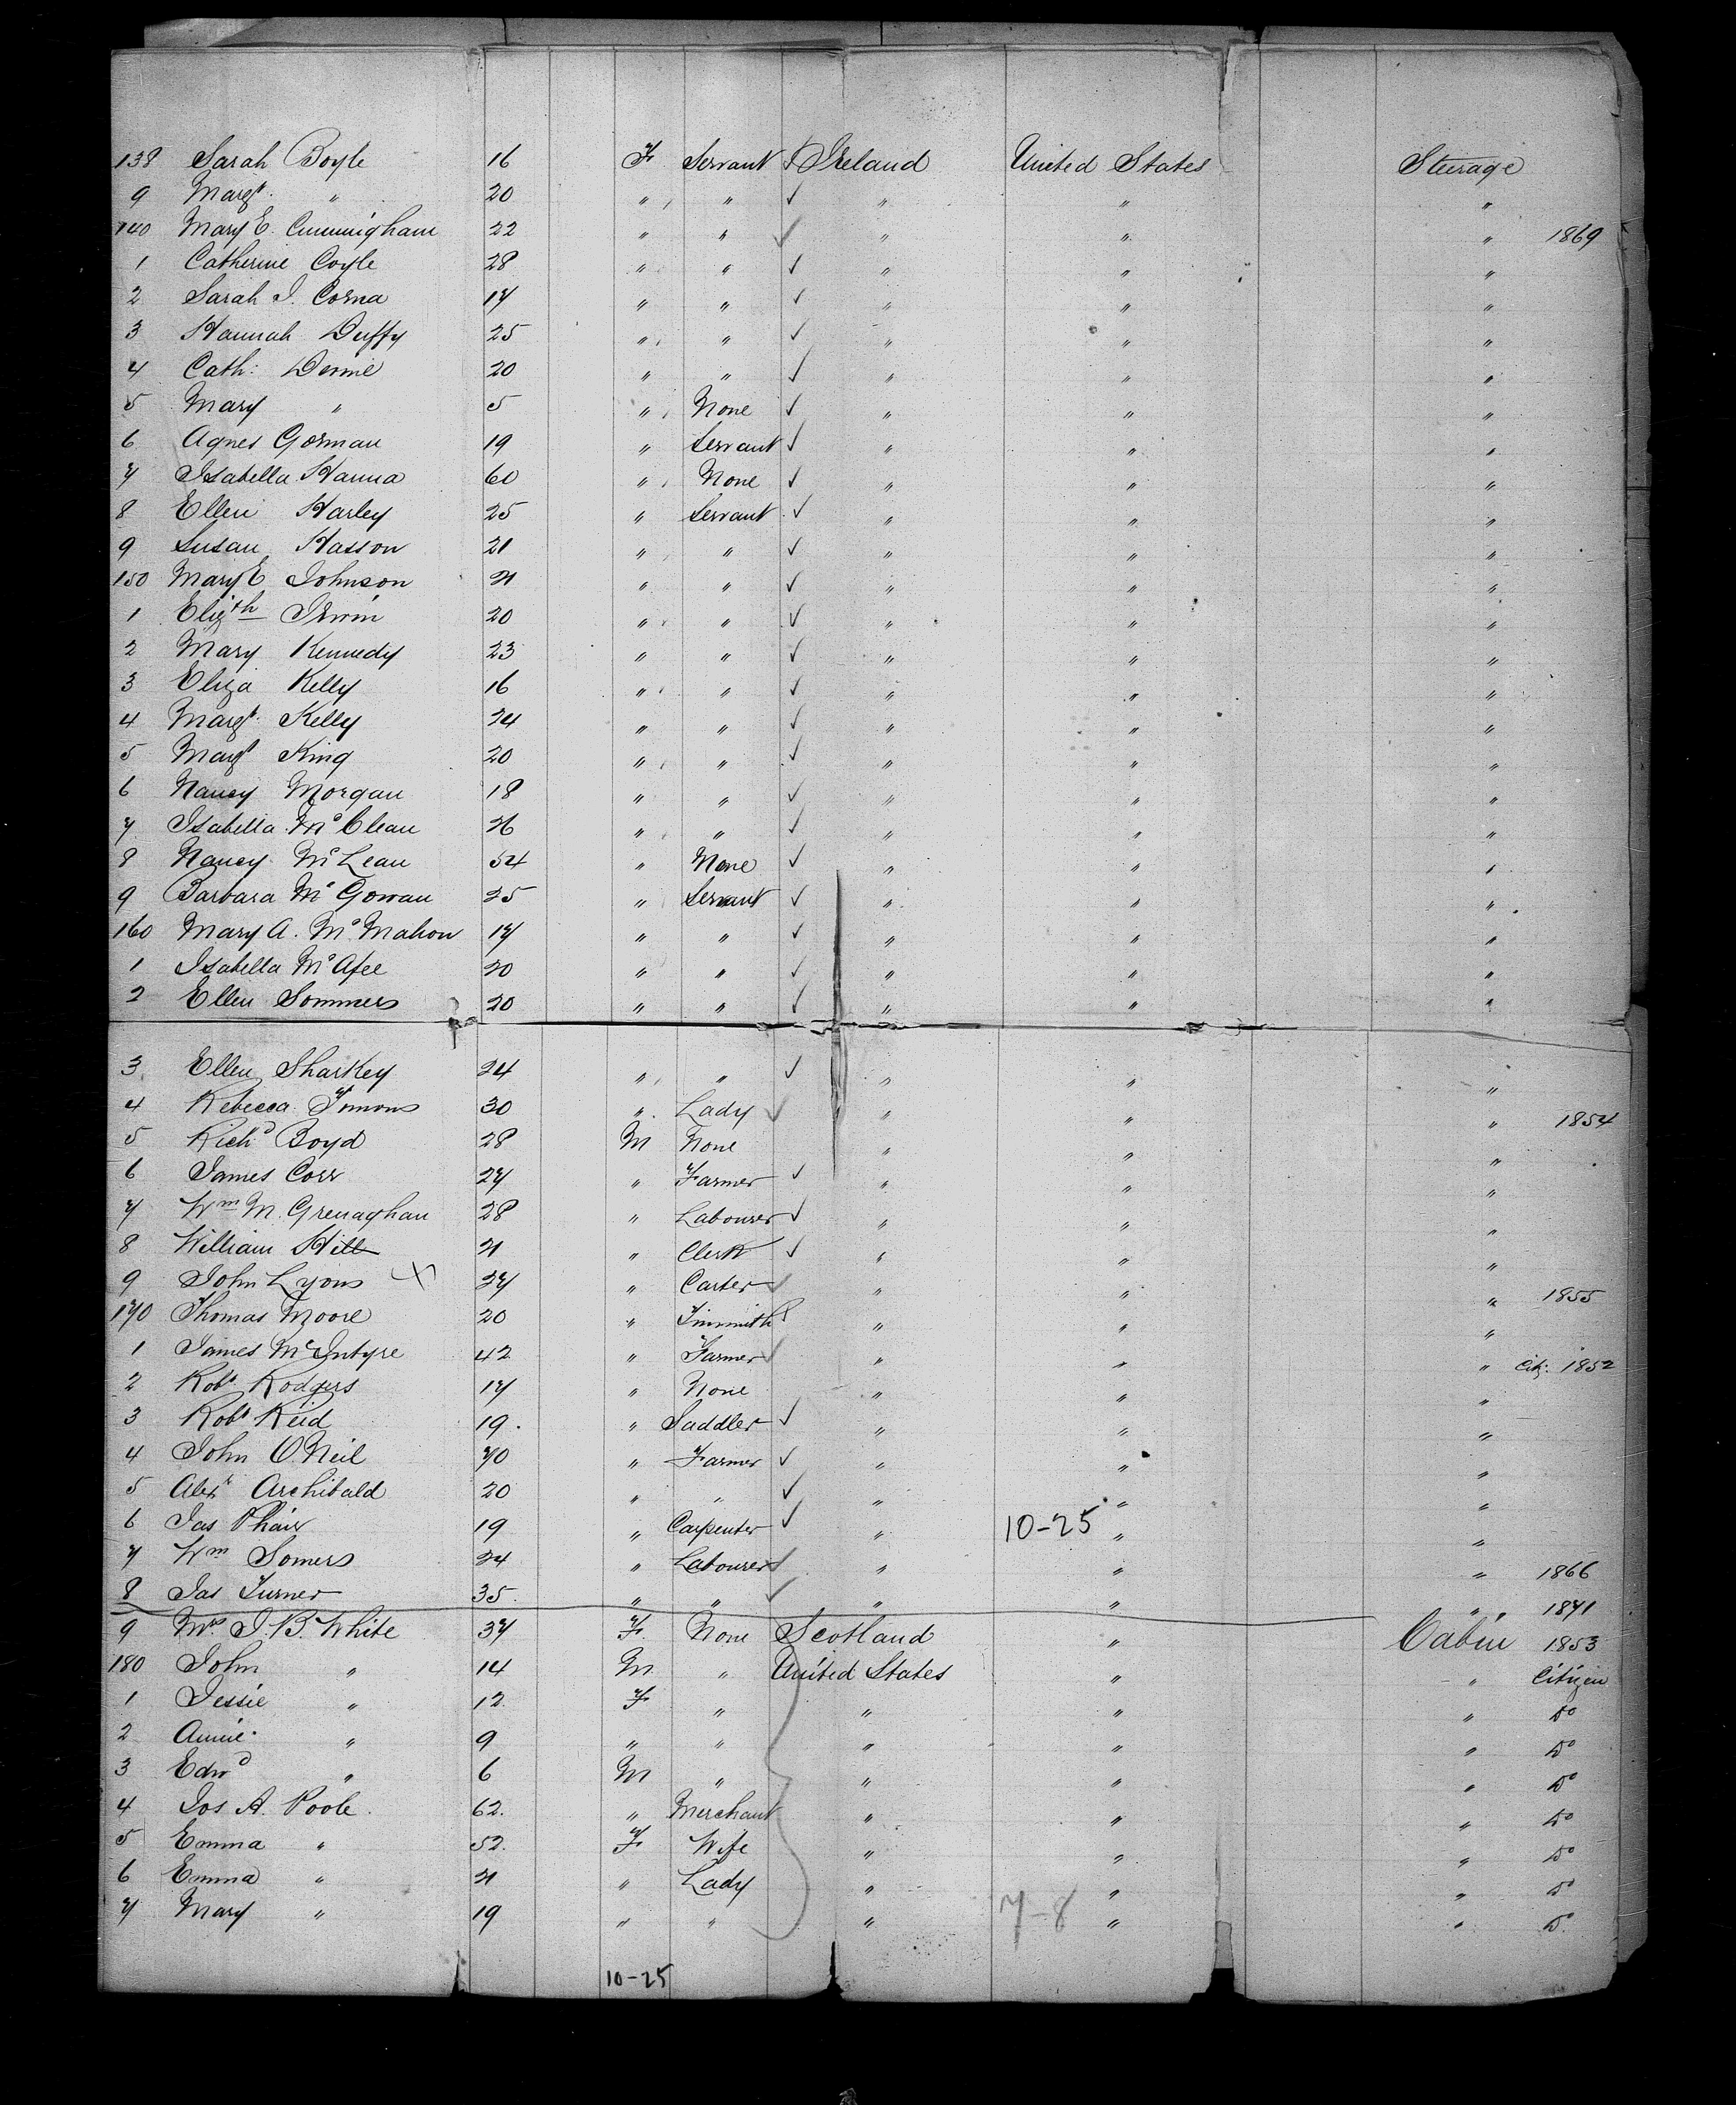 138 Sarah Boyle 16 F Servant ✓ Ireland United States Steerage
9 Margt. " 20 " " ✓ " " "
140 Mary E. Cunningham 22 " " ✓ " " " 1869
1 Catherine Coyle 28 " " ✓ " " "
2 Sarah J. Corna 17 " " ✓ " " "
3 Hannah Duffy 25 " " ✓ " " "
4 Cath: 20 " " ✓ " " "
5 Mary " 5 " None ✓ " " "
6 Agnes Gorman 19 " Servant ✓ " " "
7 Isabella Hanna 60 " None ✓ " " "
8 Ellen Harley 25 " Servant ✓ " " "
9 Susan Hasson 21 " " ✓ " " "
150 Mary E Johnson 21 " " ✓ " " "
1 Elizth Irwin 20 " " ✓ " " "
2 Mary Kennedy 23 " " ✓ " " "
3 Eliza Kelly 16 " " ✓ " " "
4 Margt. Kelly 24 " " ✓ " " "
5 Margt King 20 " " ✓ " " "
6 Nancy Morgan 18 " " ✓ " " "
7 Isabella McClean 26 " " ✓ " " "
8 Nancy McLean 54 " None ✓ " " "
9 Barbara McGowan 25 " Servant ✓ " " "
160 Mary A. McMahon 17 " " ✓ " " "
1 Isabella McAfee 20 " " ✓ " " "
2 Ellen Sommers 20 " " ✓ " " "
3 Ellen Sharkey 24 " " ✓ " " "
4 Rebecca Timons 30 " Lady ✓ " " " 1854
5 Richd Boyd 28 M None " " "
6 James Corr 27 " Farmer ✓ " " "
7 Wm M. Grenaghan 28 " Labourer ✓ " " "
8 William Hill 21 " Clerk ✓ " " "
9 John Lyons X 27 " Carter ✓ " " " 1855
170 Thomas Moore 20 " Tinsmith ✓ " " "
1 James McIntyre 42 " Farmer ✓ " " " Citz: 1852
2 Robt Rodgers 17 " None " " "
3 Robt Reid 19. " Saddler ✓ " " "
4 John O'Neil 70 " Farmer ✓ " " "
5 Alexr Archibald 20 " " ✓ " " "
6 Jas Phair 19 " Carpenter ✓ " 10-25 " "
7 Wm Somers 24 " Labourer ✓ " " " 1866
8 Jas Turner 35. " " ✓ " " " 1871
9 Mrs J. B. White 37 F. None Scotland " Cabin 1853
180 John " 14 M " United States " " Citizen
1 Jessie " 12. F " " " " Do
2 Annie " 9 " " " " " Do
3 Edwd " 6 M " " " " Do
4 Jos A. Poole 62. " Merchant " " " Do
5 Emma " 52. F Wife " " " Do
6 Emma " 21 " Lady " " " Do
7 Mary " 19 " " " 7-8 " " Do.
10-25